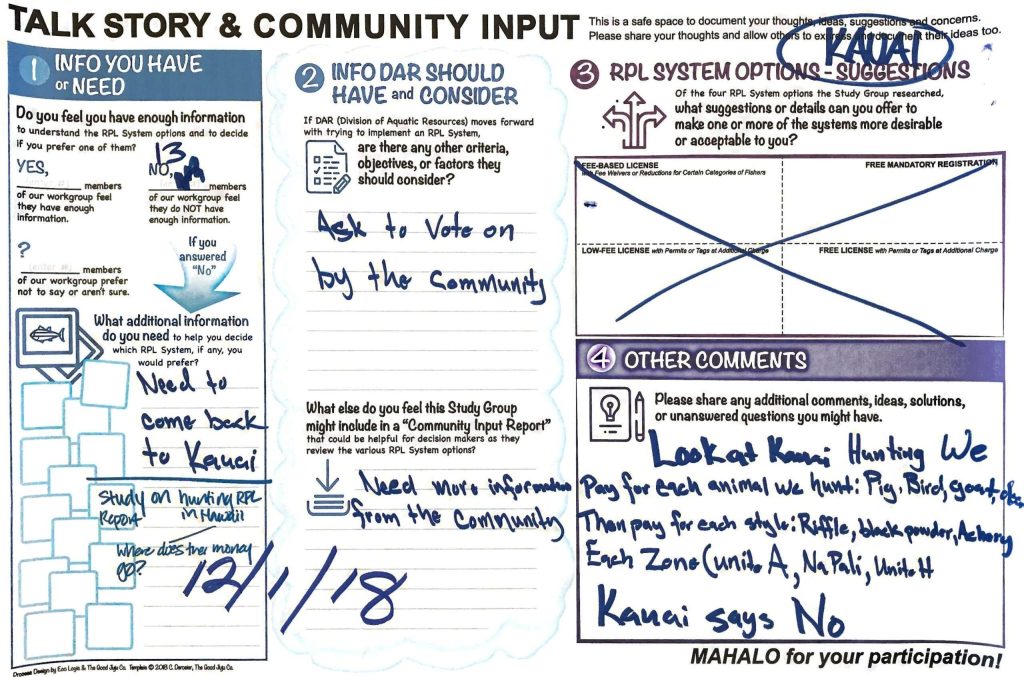 TALK STORY & COMMUNITY INPUT
This is a safe space to document your thoughts, ideas, suggestions and concerns.
Please share your thoughts and allow others to express and document their ideas too.
KAUAI
1 INFO YOU HAVE
or NEED
Do you feel you have enough information
to understand the RPL System options and to decide
if you prefer one of them?
13
YES,
members
of our workgroup feel
they have enough
information.
NO,
members
of our workgroup feel
they do NOT have
enough information.
?
members
of our workgroup prefer
not to say or aren't sure.
If you
answered
"No"
What additional information
do you need to help you decide
which RPL System, if any, you
would prefer?
Need to
come back
to Kauai
Study on hunting RPL
Report in Hawaii
Where does the money
go?
12/1/18
Process Design by Eco Logix & The Good Juju Co. Template © 2018 C. Dorosier, The Good Juju Co.
2 INFO DAR SHOULD
HAVE and CONSIDER
If DAR (Division of Aquatic Resources) moves forward
with trying to implement an RPL System,
are there any other criteria,
objectives, or factors they
should consider?
Ask to Vote on
by the Community
What else do you feel this Study Group
might include in a "Community Input Report"
that could be helpful for decision makers as they
review the various RPL System options?
Need more information
from the Community
3 RPL SYSTEM OPTIONS - SUGGESTIONS
Of the four RPL System options the Study Group researched,
what suggestions or details can you offer to
make one or more of the systems more desirable
or acceptable to you?
FEE-BASED LICENSE
with Fee Waivers or Reductions for Certain Categories of Fishers
FREE MANDATORY REGISTRATION
LOW-FEE LICENSE with Permits or Tags at Additional Charge
FREE LICENSE with Permits or Tags at Additional Charge
4 OTHER COMMENTS
Please share any additional comments, ideas, solutions,
or unanswered questions you might have.
Look at Kauai Hunting We
Pay for each animal we hunt: Pig, Bird, goat, dee
Then pay for each style: Riffle, black powder, Achery
Each Zone (unite A, Na Pali, Unite H
Kauai says No
MAHALO for your participation!